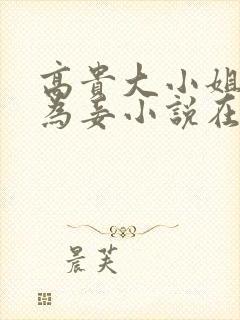 高貴大小姐
為妾小說在
晨芙